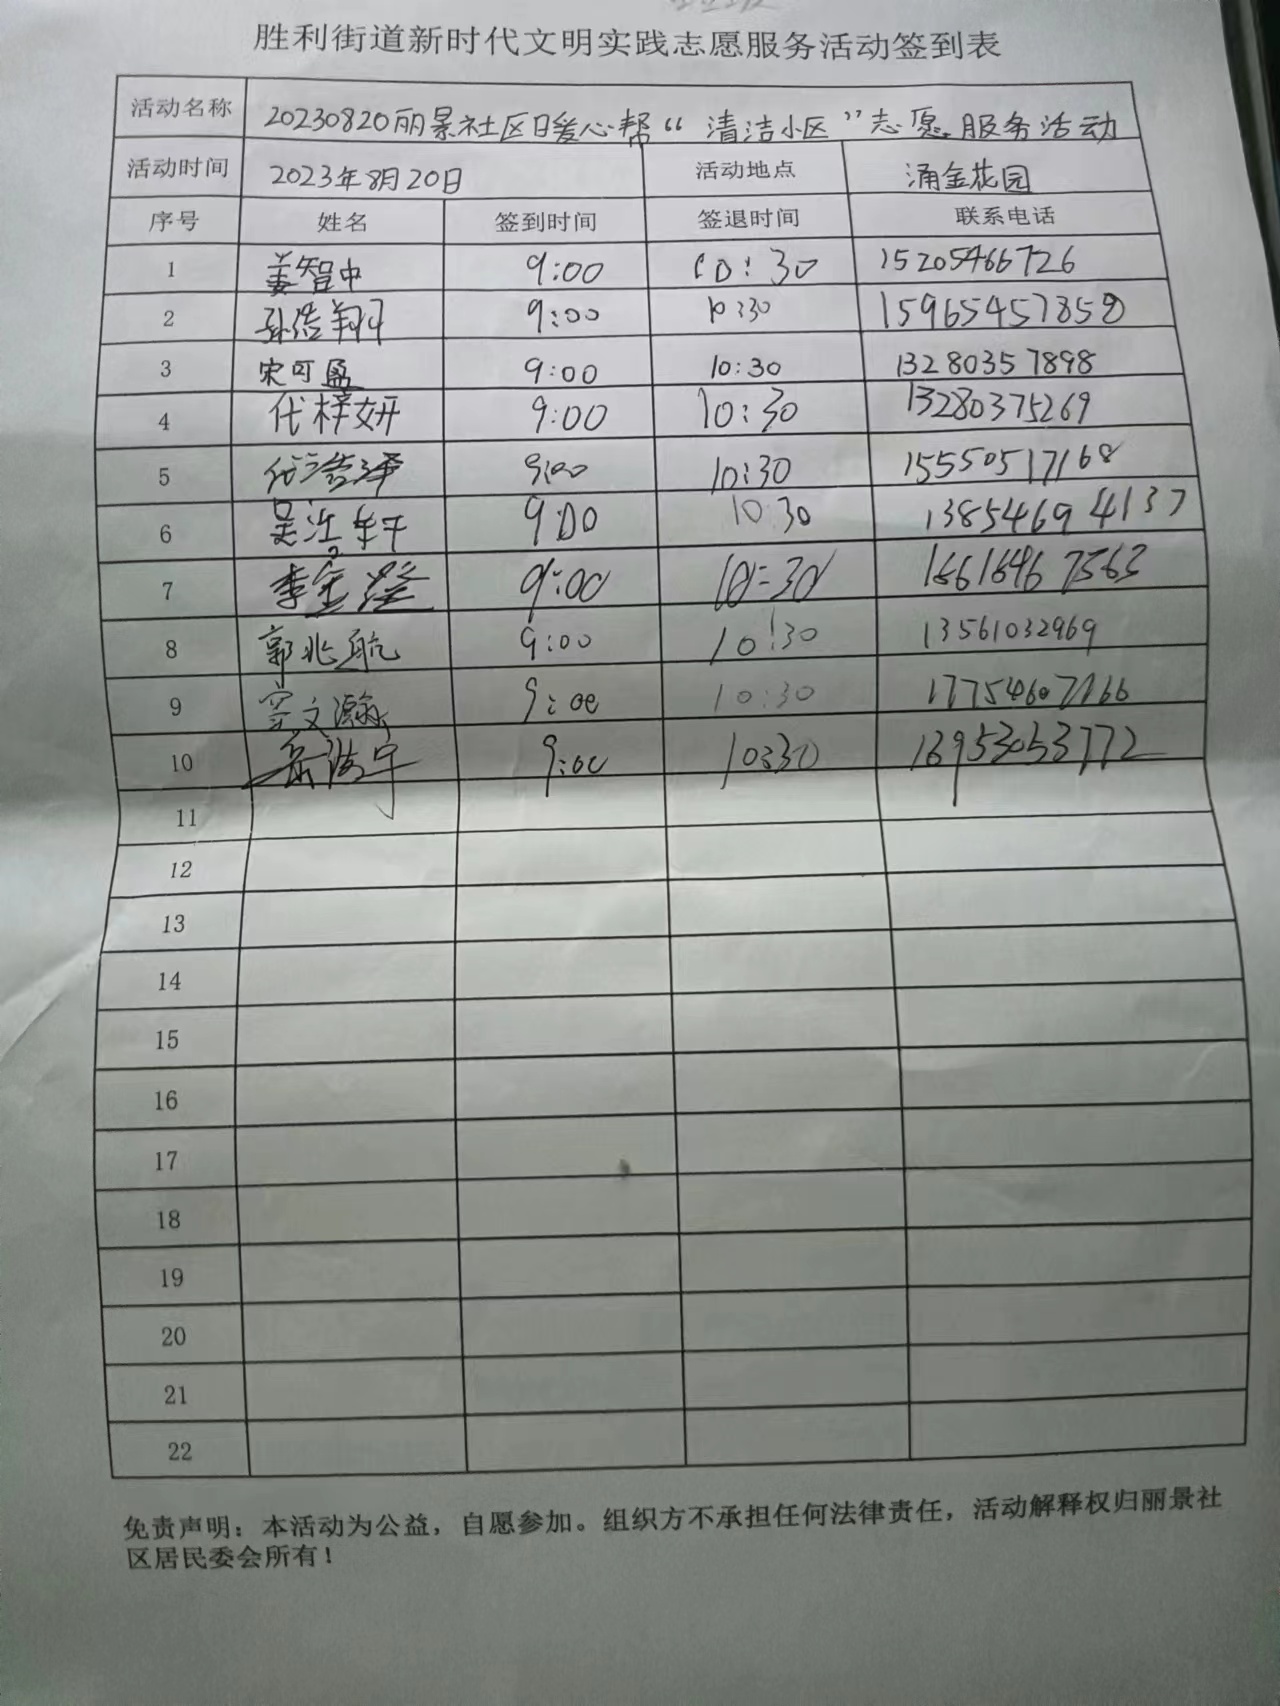 胜利街道新时代文明实践志愿服务活动签到表
活动名称 20230820丽景社区日暖心帮“清洁小区”志愿服务活动
活动时间 2023年8月20日 活动地点 涌金花园
序号 姓名 签到时间 签退时间 联系电话
1 姜智中 9:00 10:30 15205466726
2 孙浩翔 9:00 10:30 15965457858
3 宋可盈 9:00 10:30 13280357898
4 代梓妍 9:00 10:30 13280375269
5 代浩泽 9:00 10:30 15550517168
6 吴泓轩 9:00 10:30 13854694137
7 李金 9:00 10:30
8 郭兆航 9:00 10:30 13561032969
9 文瀚 9:00 10:30 17754607166
10 岳 宇 9:00 10:30
11
12
13
14
15
16
17
18
19
20
21
22
免责声明：本活动为公益，自愿参加。组织方不承担任何法律责任，活动解释权归丽景社
区居民委会所有！